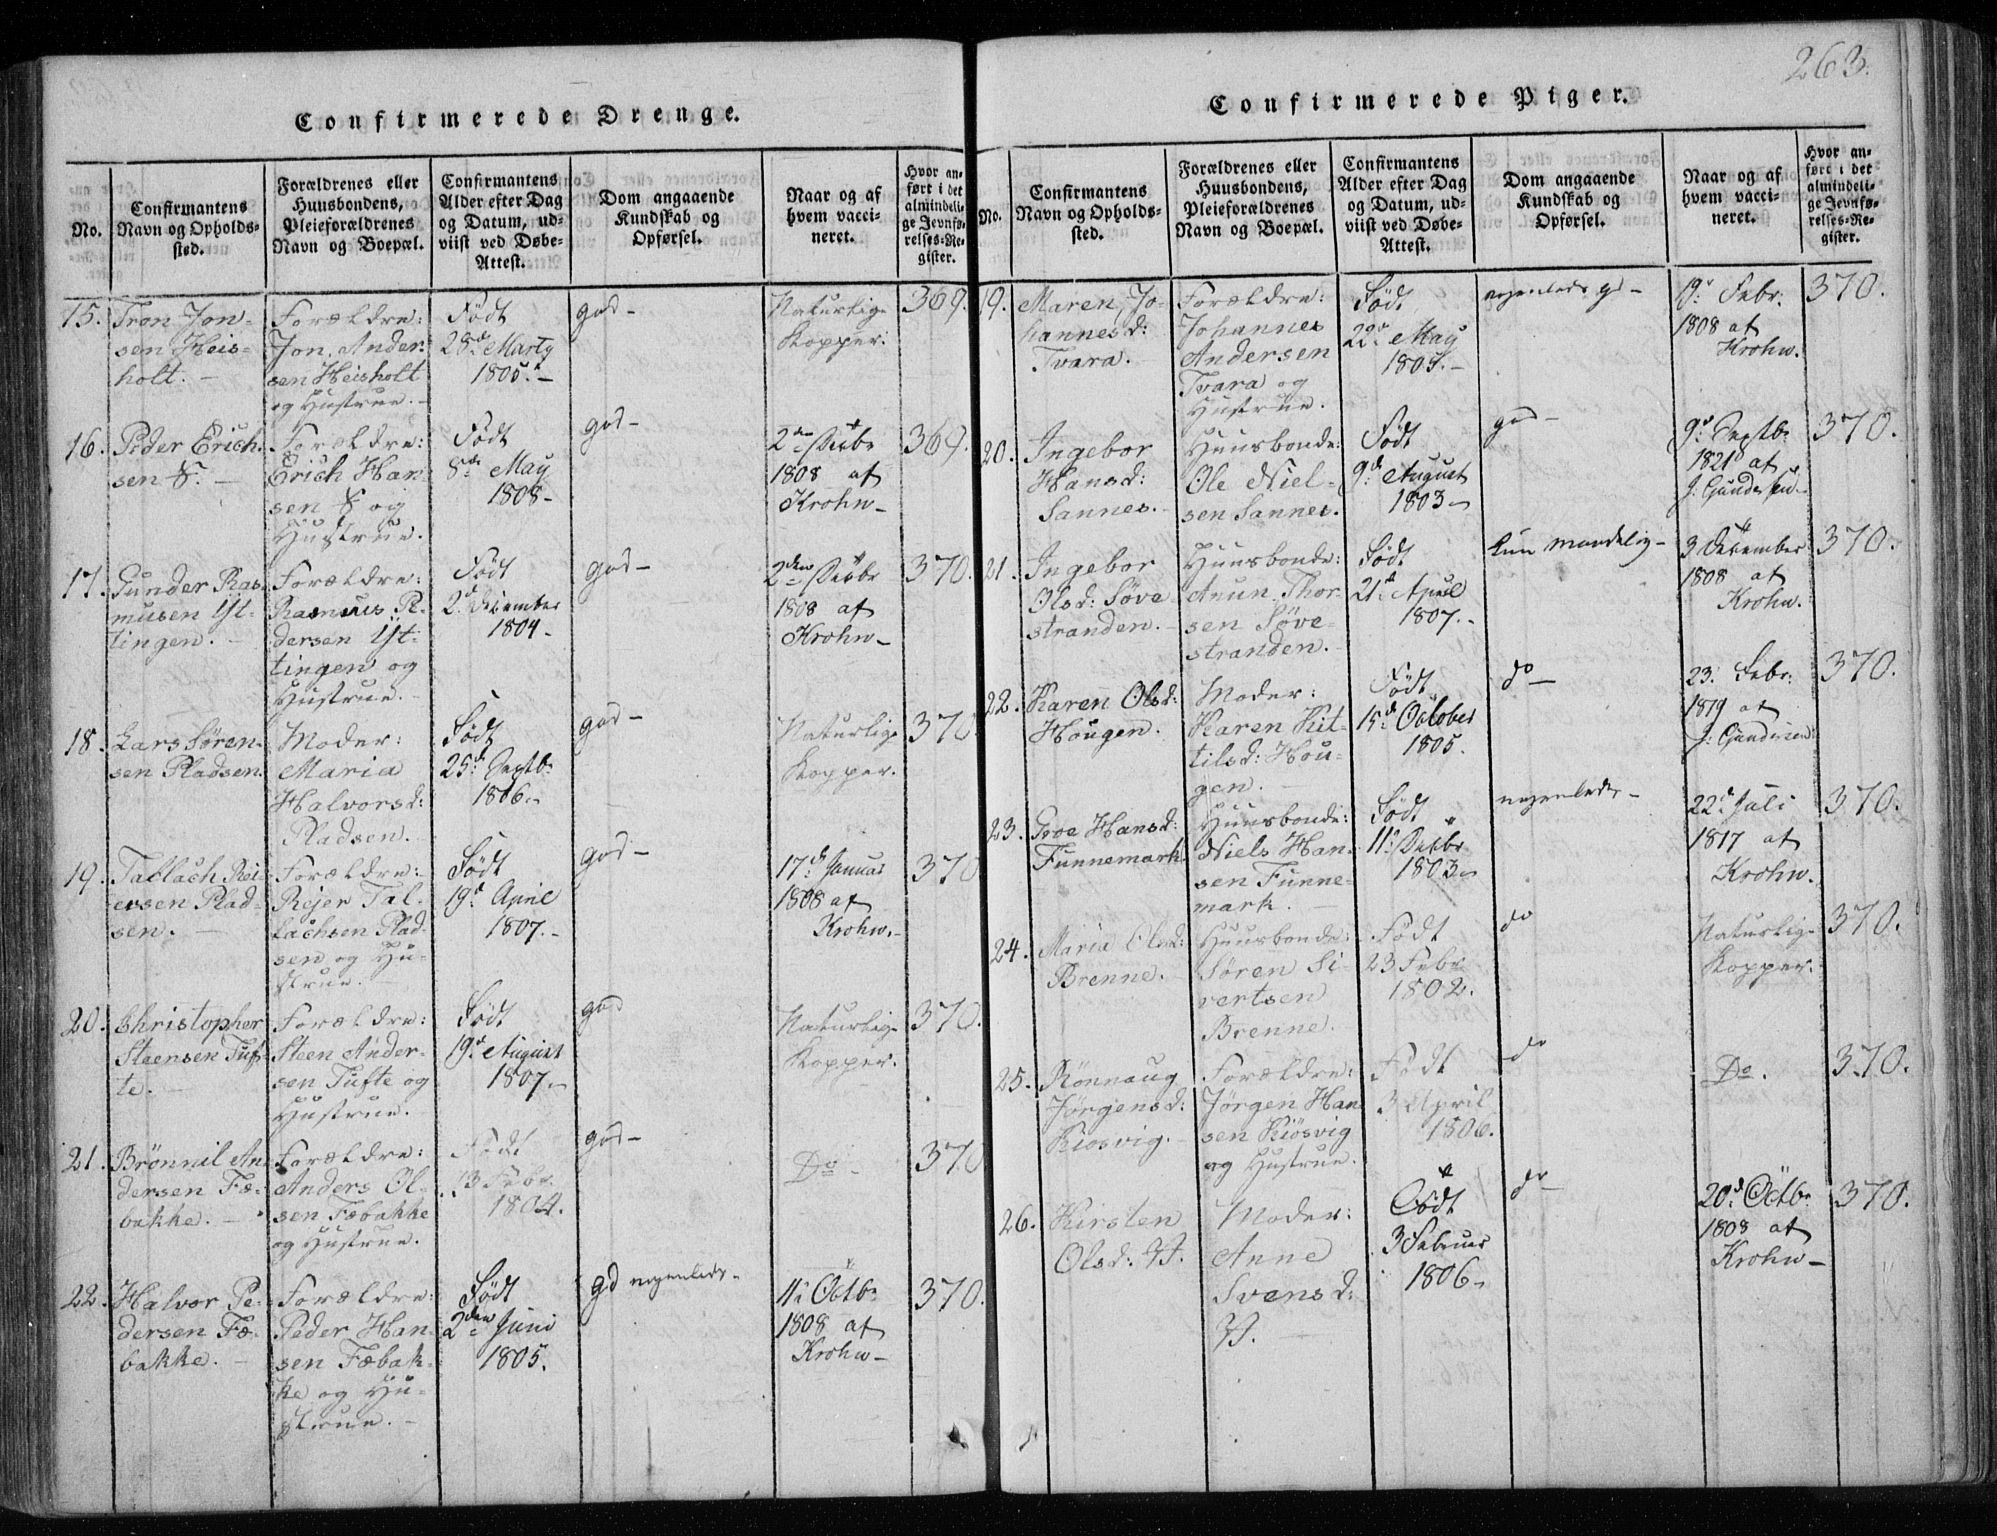 263.
Confirmerede Drenge.
No.
Confirmantens
Navn og Opholds-
sted.
Forældrenes eller
Huusbondens,
Pleieforældrenes
Navn og Boepæl.
Confirmantens
Alder efter Dag
og Datum, ud-
viist ved Døbe-
Attest.
Dom angaaende
Kundskab og
Opførsel.
Naar og af
hvem vacci-
neret.
Hvor an-
ført i det
almindeli-
ge Jevnfø-
relses-Re-
gister.
15.
Tron Jon-
sen Heis-
holt. -
Forældre:
Jon Ander:
sen Heisholt
og Hustrue. -
Født
28de Marty
1805. -
god -
Naturlige
Kopper.
369.
16.
Peder Erich-
sen S. -
Forældre:
Erich Han-
sen S og
Hustrue.
Født
8de May
1808 -
god -
2den
1808 af
Krohn -
369.
17.
Gunder Ras-
musen Yt-
tingen. -
Forældre:
Rasmus P.
dersen Yt-
tingen og
Hustrue.
Født
2d December
1804 -
god -
2den
1808 af
Krohn -
370.
18.
Lars Sören-
sen Pladsen.
Moder:
Maria
Halvorsd:
Pladsen.
Født
25d Septb.
1806. -
god -
Naturlige
Kopper.
370.
19.
Tallach Rei-
ersen Plad-
sen. -
Forældre:
Rejer Tal-
lachsen Plad-
sen og Hu-
strue. -
Født
19d April
1807. -
god -
17d Januar
1808 af
Krohn. -
370
20.
Christopher
Steensen Tuf-
te. -
Forældre:
Steen Ander-
sen Tufte og
Hustrue. -
Født
19d August
1807. -
god
Naturlige
Kopper.
370.
21.
Brönnil An
dersen Fæ-
bakke. -
Forældre:
Anders Ol-
sen Fæbakke
og Hustrue.
Født
13 Febr.
1804.
god -
Do -
370
22.
Halvor Pe-
dersen Fæ-
bakke. -
Forældre:
Peder Han-
sen Fæbak-
ke og Hu-
strue. -
Født
2den Juni
1805.
gd nogenleds -
11 Octb.
1808 af
Krohn -
370.
Confirmerede Piger.
No.
Confirmantens
Navn og Opholds-
sted.
Forældrenes eller
Huusbondens,
Pleieforældrenes
Navn og Boepæl.
Confirmantens
Alder efter Dag
og Datum, ud-
viist ved Døbe-
Attest.
Dom angaaende
Kundskab og
Opførsel.
Naar og af
hvem vacci-
neret.
Hvor an-
ført i det
almindeli-
ge Jevnfø-
relses-Re-
gister.
19.
Maren Jo-
hannesd:
Tvara.
Forældre:
Johannes
Andersen
Tvara og
Hustrue.
Født
22d May
1805. -
nogenleds gd -
19d Febr.
1808 af
Krohn.
370.
20.
Ingebor
Hansd:
Sannes. -
Huusbonde:
Ole Niel-
sen Sannes.
Født
9d August
1803 -
gd -
9d Septb.
1821 af
J: Gundersen -
370.
21.
Ingebor
Olsd: Søve
stranden. -
Huusbonde:
Anun Thor-
sen Söve-
stranden.
Født
21d April
1807. -
kun maadelig -
3 December
1808 af
Krohn.
370.
22.
Karen Olsd:
Hougen.
Moder:
Karen Kit-
tilsd: Hou-
gen. -
Født
15d October
1805.
do -
23. Febr.
1819 af
J: Gundersen
370.
23.
Groe Hansd:
Funnemark
Huusbonde:
Niels Han-
sen Funne-
mark. -
Født
11
1803 -
nogenleds -
22d Juli
1817 af
Krohn.
370.
24.
Maria Olsd:
Brenne. -
Huusbonde:
Sören Si-
vertsen
Brenne.
Født
23 Febr.
1802.
do
Naturlige
Kopper.
370.
25.
Rönnaug
Jørgensd:
Kiosvig. -
Forældre:
Jørgen Han-
sen Kiösvig
og Hustrue.
Født
3 April
1806.
do
Do.
370.
26.
Kirsten
Olsd:
Moder:
Anne
Svensd:
Født
3 Februar
1806 -
do -
20d Octb.
1808 af
Krohn -
370.